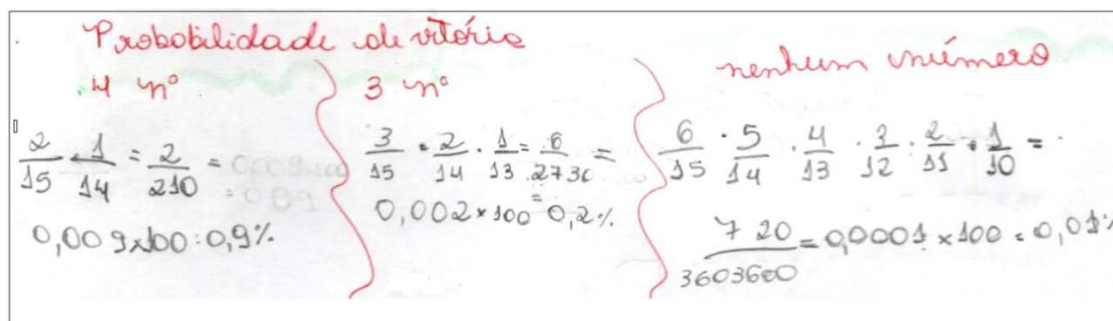 Probobilidade de vitória
4 nº
2/15 · 1/14 = 2/210 =
0,009x100:0,9%
3 nº
3/15 · 2/14 · 1/13 = 6/2730 =
0,002x100 = 0,2%
nenhum número
6/15 · 5/14 · 4/13 · 3/12 · 2/11 · 1/10 =
720/3603600 = 0,0001 x 100 = 0,01%